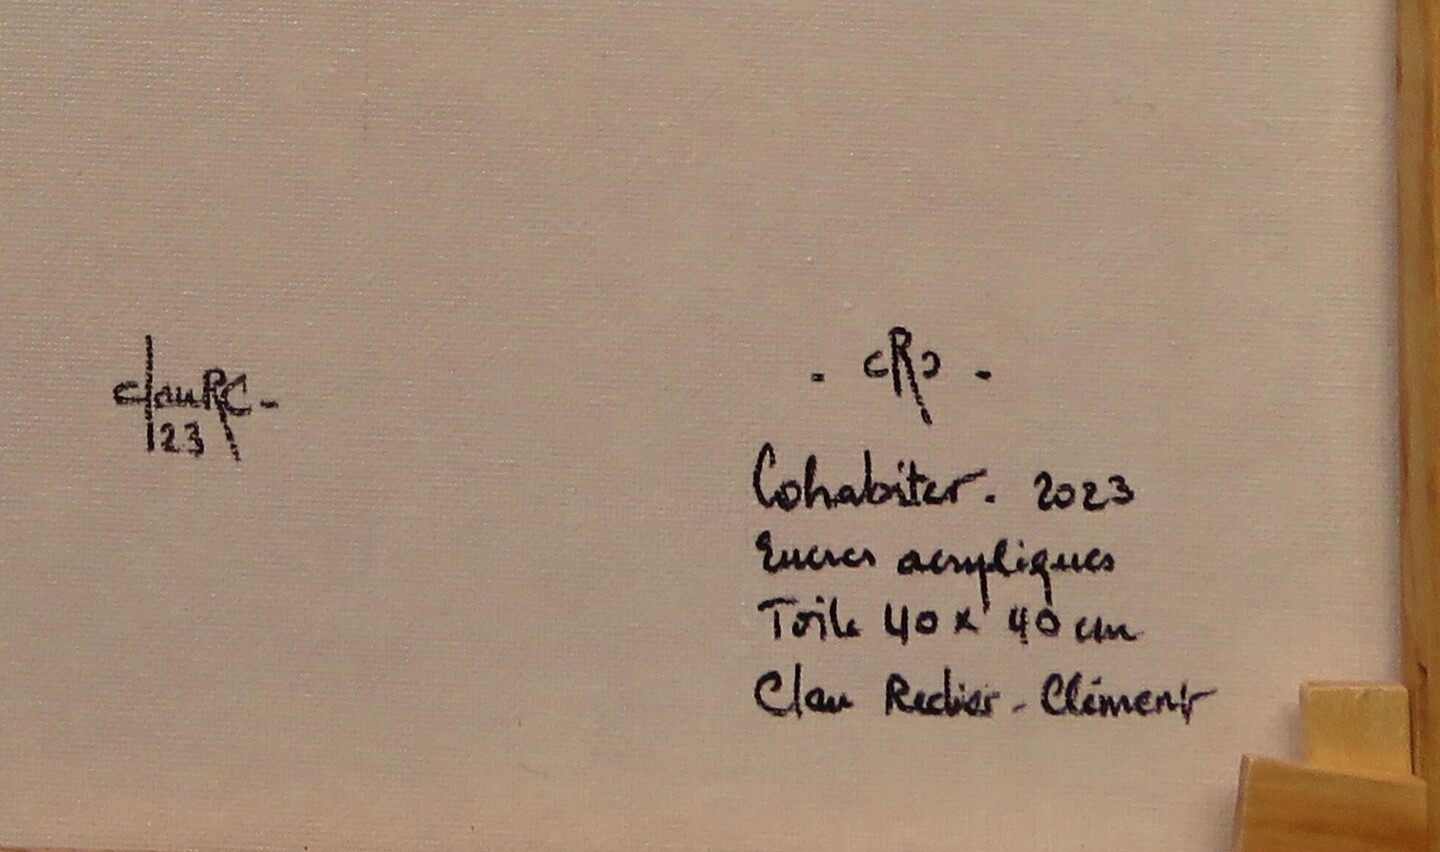 clauRC-
23
. cRc -
Cohabiter. 2023
Encres acryliques
Toile 40 x 40 cm
Clau Redier - Clément